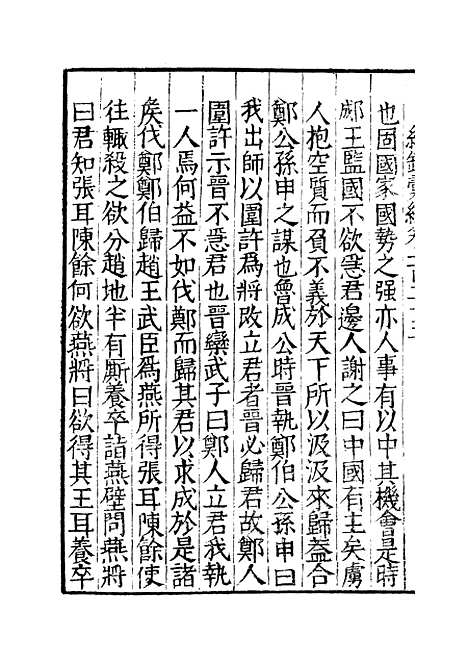 也固國家國勢之强亦人事有以中其機會是時
郕王監國不欲急君邊人謝之曰中國有主矣虜
人抱空質而負不義於天下所以汲汲來歸葢合
鄭公孫申之謀也魯成公時晉執鄭伯公孫申曰
我出師以圍許爲將改立君者晉必歸君故鄭人
圍許示晉不急君也晉欒武子曰鄭人立君我執
一人焉何益不如伐鄭而歸其君以求成於是諸
侯伐鄭鄭伯歸趙王武臣爲燕所得張耳陳餘使
往輒殺之欲分趙地半有厮養卒詣燕壁問燕將
曰君知張耳陳餘何欲燕將曰欲得其王耳養卒